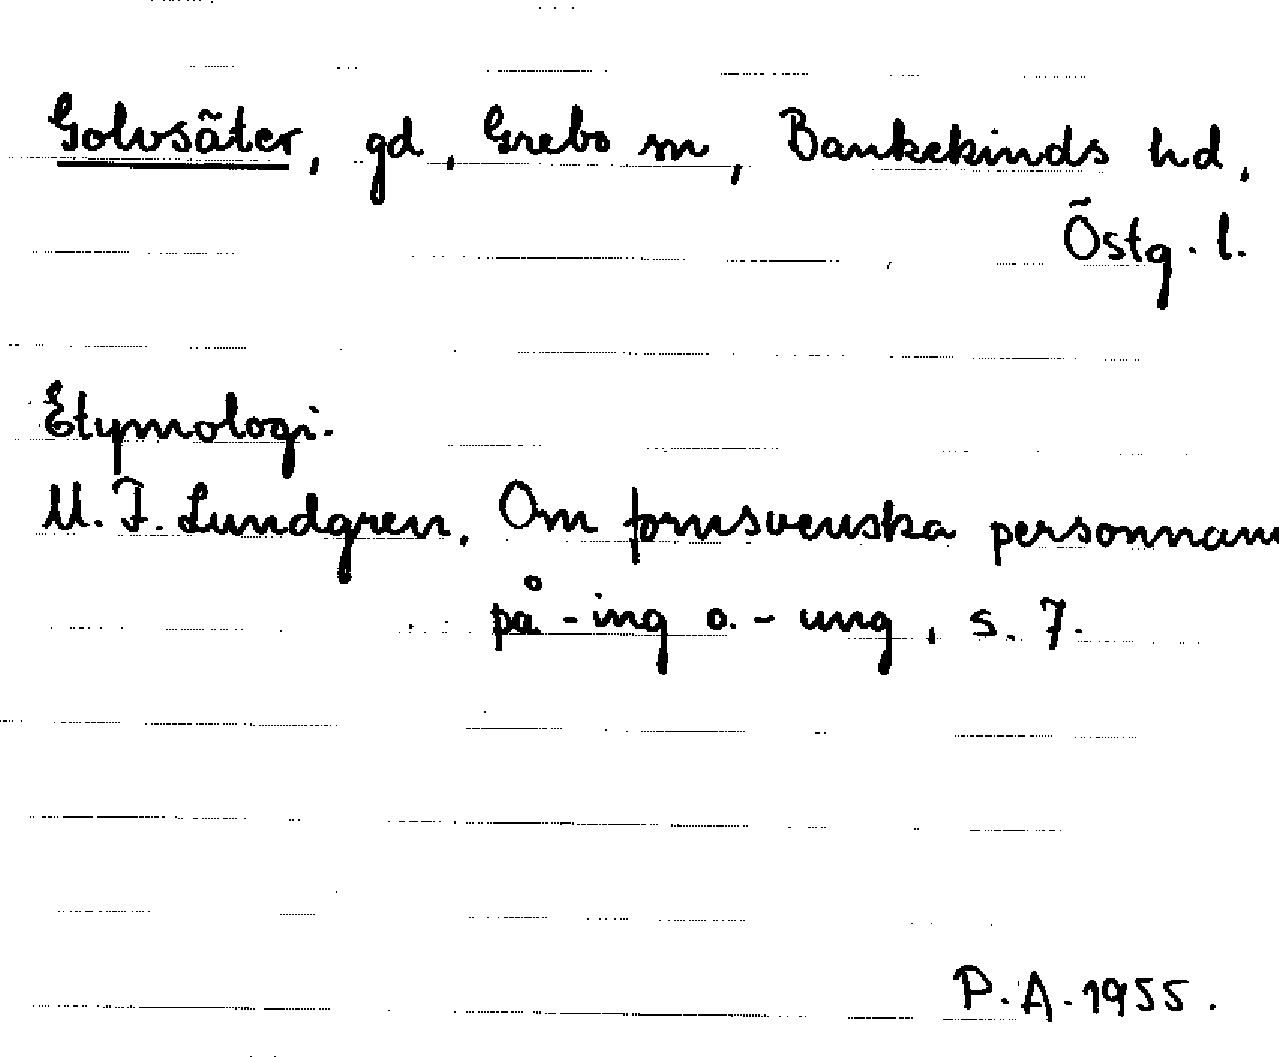 Golvsäter, gd, Grebo sn, Bankekinds hd,
Östg. l.
Etymologi.
M. F. Lundgren, Om fornsvenska personnamn
på -ing o. - ung, s. 7.
P. A. 1955.